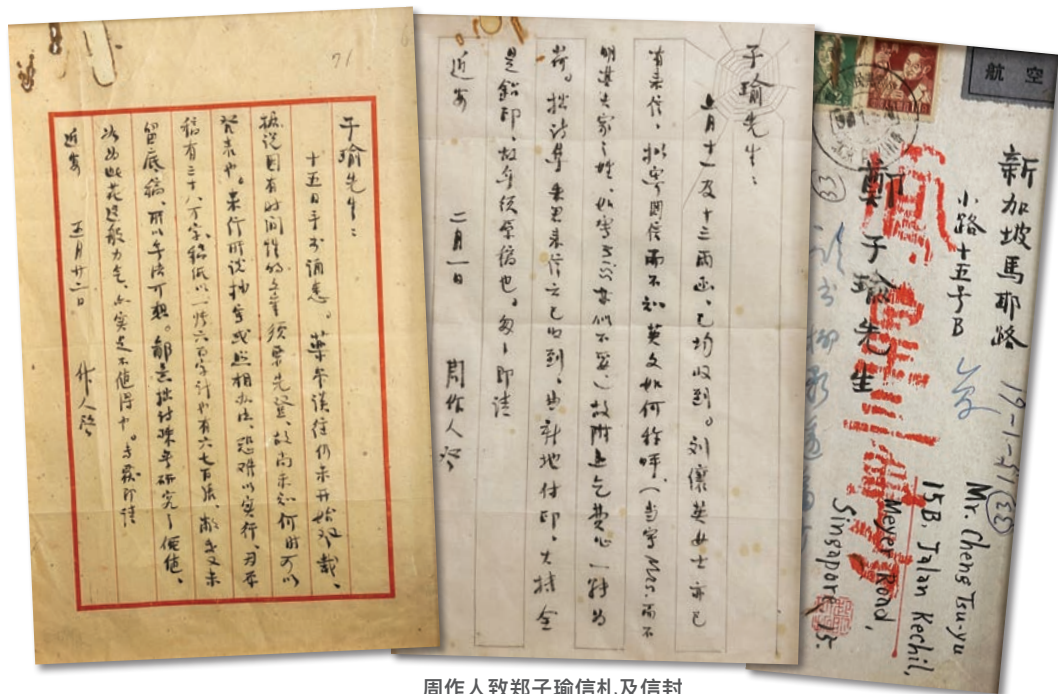 71
子瑜先生：
十五日手书诵悉。药堂谈往仍未开始登载、
据说因有时间性的文章须要先登、故尚未知何时可以
发表也。来信所说抽字或照相办法、恐难以实行、因原
稿有三十八万字、稿纸以一 六百字计也有六七百张、敝处又未
留底稿、所以无法可想。 研究之
以为此花这般力气、 实是不值得也。专复即请
近安
五月廿二日 作人启
子瑜先生：
一月十一及十三两函、已均收到。刘 英女士亦已
有来信、拟写回信而不知英文如何称呼、（当写Mrs.而不
明其夫家之姓、如写Miss 似不妥）故附上乞费心一转为
荷。拙诗集 来信云已收到、当就地付印、大抵全
是铅印、故无须原稿也。匆々即请
近安
二月一日 周作人启
航空
新加坡馬耶路
小路十五号B
鄭子瑜先生
19-1-51
Mr. Cheng Tsu-yu
15B, Jalan Kechil,
Meyer Road,
Singapore, 15.
周作人致郑子瑜信札及信封